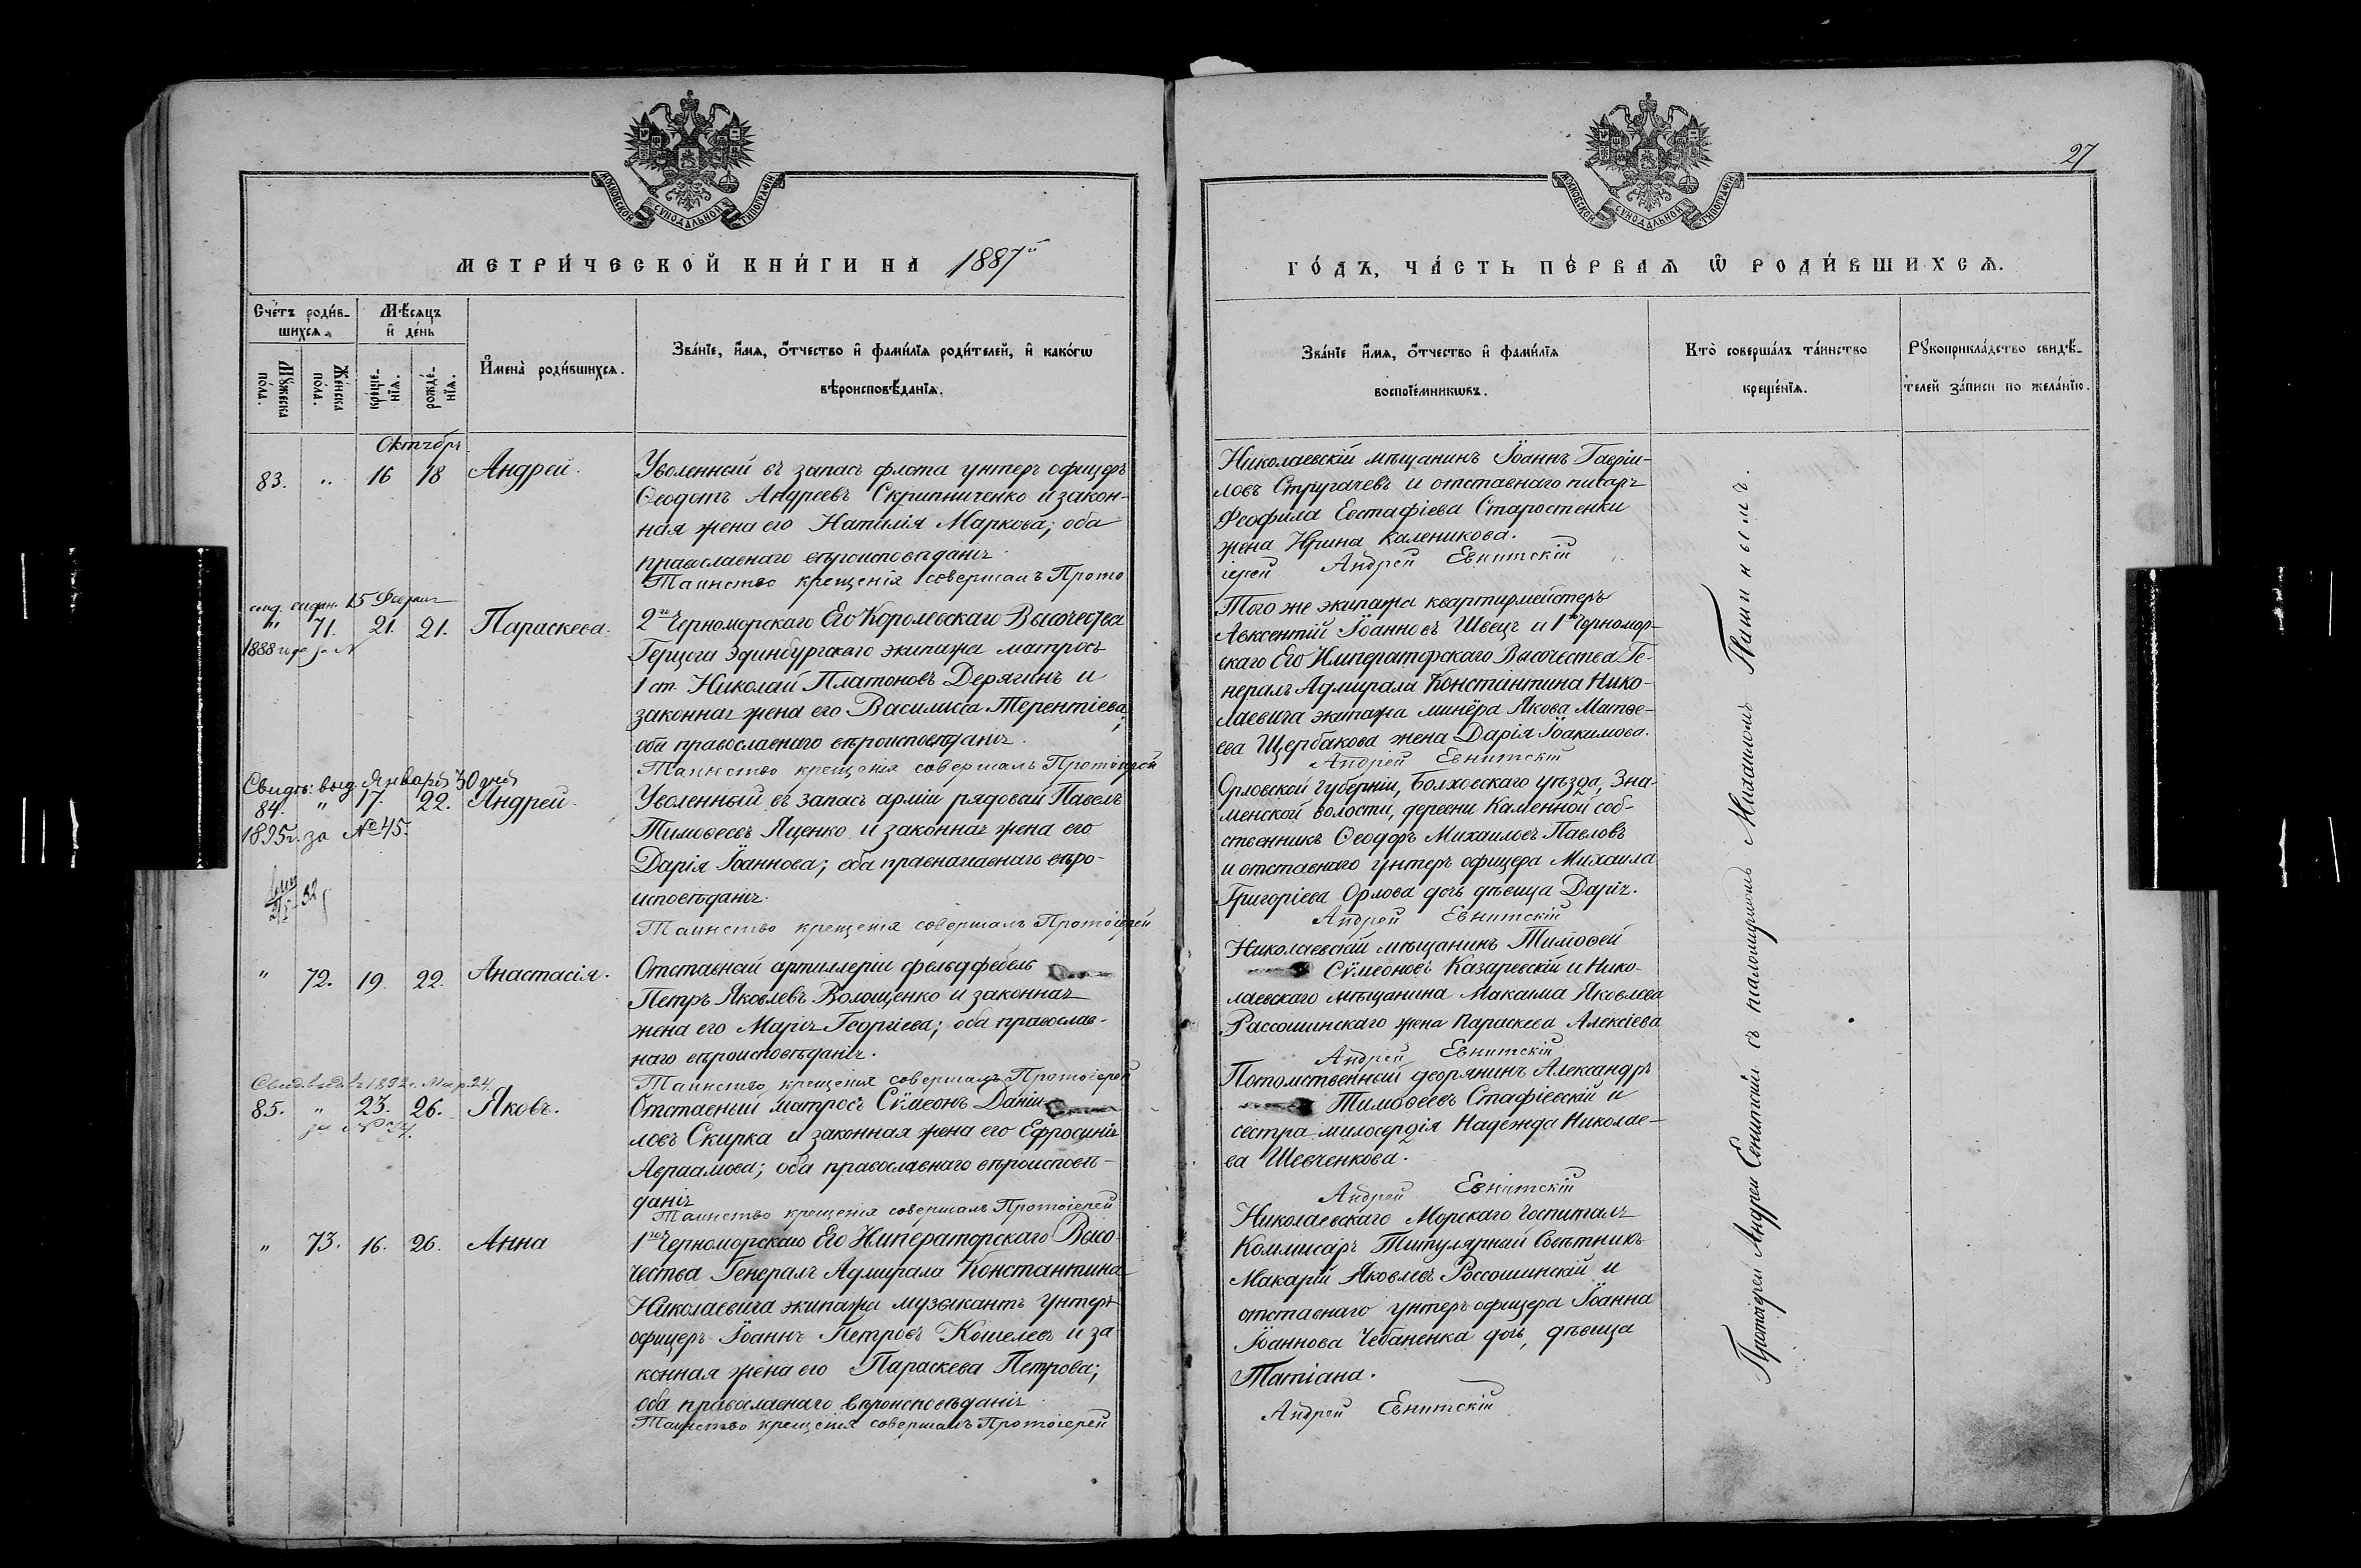 27
МОСКОВСКОЙ СѴНОДАЛЬНОЙ ТИПОГРАФІИ
МОСКОВСКОЙ СѴНОДАЛЬНОЙ ТИПОГРАФІИ
МЕТРИ́ЧЕСКОЙ КНИ́ГИ НА 1887й
ГО́ДЪ, ЧА́СТЬ ПЕ́РВАѦ Ѿ РОДИ́ВШИХСѦ.
Сче́тъ роди́в-
шихсѧ.
Мꙋжеска по́лъ.
Же́нска по́лъ.
Мѣ́сѧцъ
и҆ де́нь
креще́-
нїѧ.
рожде́-
нїѧ.
И҆мена̀ роди́вшихсѧ.
Зва́нїе, и҆́мѧ, ѻ҆́тчество и҆ фами́лїѧ роди́телей, и҆ како́гѡ
вѣроисповѣ́данїѧ.
Зва́нїе и҆́мѧ, ѻ҆́тчество и҆ фами́лїѧ
воспрїе́мникѡвъ.
Кто̀ соверша́лъ та́инство
креще́нїѧ.
Рꙋкоприкла́дство свидѣ́-
телей за́писи по жела́нїю.
Октябрь
83. " 16 18 Андрей.
Уволенный въ запасъ флота унтеръ офицеръ
Ѳеодотъ Андреевъ Скрипниченко и закон-
ная жена его Наталія Маркова; оба
православнаго вѣроисповѣданія.
Таинство крещенія совершалъ Прото
Николаевскій мѣщанинъ Іоаннъ Гаврiи-
ловъ Стругачевъ и отставнаго писаря
Феофила Евстафіева Старостенки
жена Ирина Каленикова.
іерей Андрей Евнитскій
свид. выдан. 15 Февраля
" 71. 21. 21. Параскева.
1888 года за N
2го Черноморскаго Его Королевскаго Высочества
Герцога Эдинбургскаго экипажа матросъ
1 ст. Николай Платоновъ Дерягинъ и
законная жена его Василисса Терентіева;
оба православнаго вѣроисповѣданія.
Таинство крещенія совершалъ Протоіерей
Того же экипажа квартирмейстеръ
Авксентій Іоанновъ Швецъ и 1го Черномор-
скаго Его Императорскаго Высочества Ге-
нералъ Адмирала Константина Нико-
лаевича экипажа минёра Якова Матѳе-
ева Щербакова жена Дарія Іоакимова.
Андрей Евнитскій
Свидѣт. выд. Января 30 дня
84. " 17. 22. Андрей.
1895 г. за № 45.
Уволенный въ запасъ арміи рядовой Павелъ
Тимоѳеевъ Яценко и законная жена его
Дарія Іоаннова; оба православнаго вѣро-
исповѣданія.
Таинство крещенія совершалъ Протоіерей
Орловской губерніи, Болховскаго уѣзда, Зна-
менской волости, деревни Каменной соб-
ственникъ Ѳеодоръ Михаиловъ Павловъ
и отставнаго унтеръ офицера Михаила
Григоріева Орлова дочь дѣвица Дарія.
Андрей Евнитскій
" 72. 19. 22. Анастасія.
Отставной артиллеріи фельдфебель
Петръ Яковлевъ Волощенко и законная
жена его Марія Георгіева; оба православ-
наго вѣроисповѣданія.
Таинство крещенія совершалъ Протоіерей
Николаевскій мѣщанинъ Тимоѳей
Сѵмеоновъ Казаревскій и Нико-
лаевскаго мѣщанина Макаима Яковлева
Рассошинскаго жена Параскева Алексіева
Андрей Евнитскій
85. " 23. 26. Яковъ.
Отставный матросъ Сѵмеонъ Даніи-
ловъ Скирка и законная жена его Ефросинія
Авраамова; оба православнаго вѣроисповѣ-
данія
Таинство крещенія совершалъ Протоіерей
Потомственный дворянинъ Александръ
Тимоѳеевъ Стафіевскій и
сестра милосердія Надежда Николае-
ва Шевченкова.
Андрей Евнитскій
" 73. 16. 26. Анна
1го Черноморскаго Его Императорскаго Высо
чества Генералъ Адмирала Константина
Николаевича экипажа музыкантъ унтеръ
офицеръ Іоаннъ Петровъ Кошелевъ и за
конная жена его Параскева Петрова;
оба православнаго вѣроисповѣданія.
Таинство крещенія совершалъ Протоіерей
Николаевскаго Морскаго госпиталя
Коммисаръ Титулярный Совѣтникъ
Макарій Яковлевъ Россошинскій и
отставнаго унтеръ офицера Іоанна
Іоаннова Чебаненка дочь, дѣвица
Татіана.
Андрей Евнитскій
Протоіерей Андрей Евнитскій съ псаломщикомъ Михаиломъ